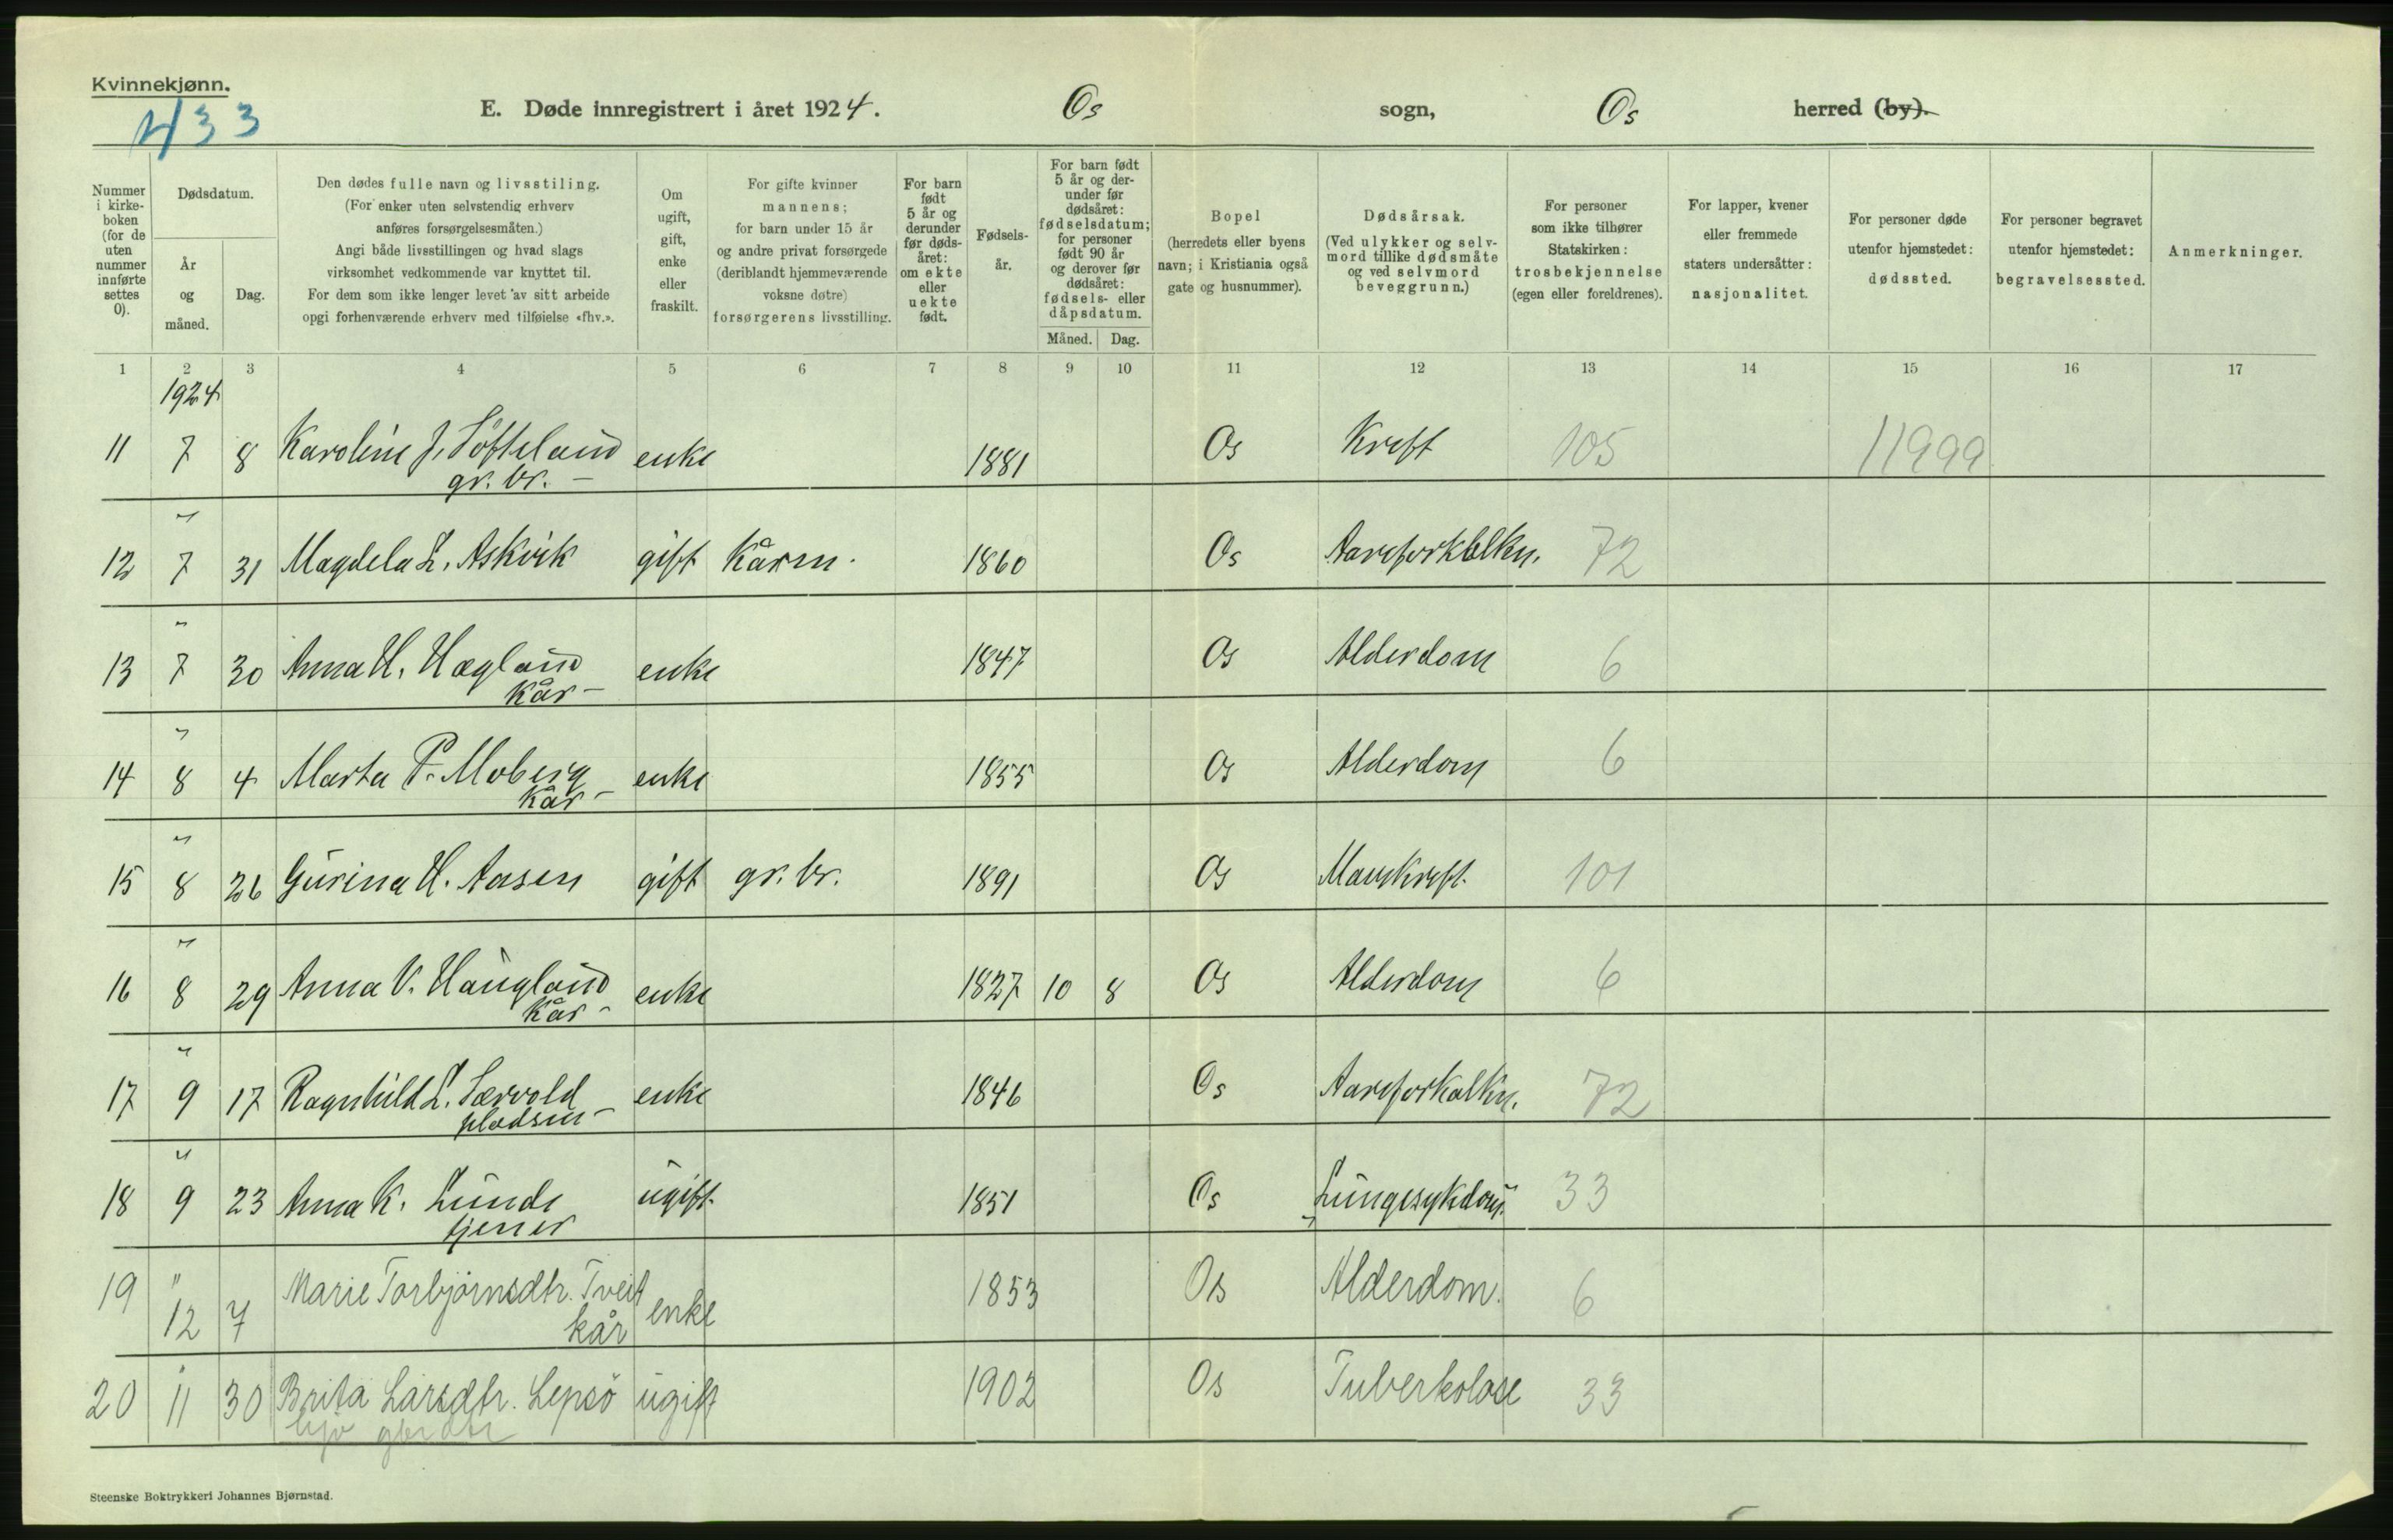 Kvinnekjønn.
433
E. Døde innregistrert i året 1924. Os sogn, Os herred (by).
Nummer i kirkeboken (for de uten nummer innførte settes 0).
Dødsdatum.
År og måned.
Dag.
Den dødes fulle navn og livsstiling.
(For enker uten selvstendig erhverv
anføres forsørgelsesmåten.)
Angi både livsstillingen og hvad slags
virksomhet vedkommende var knyttet til.
For dem som ikke lenger levet av sitt arbeide
opgi forhenværende erhverv med tilføielse «fhv.».
Om
ugift,
gift,
enke
eller
fraskilt.
For gifte kvinner
mannens;
for barn under 15 år
og andre privat forsørgede
(deriblandt hjemmeværende
voksne døtre)
forsørgerens livsstilling.
For barn
født
5 år og
derunder
før døds-
året:
om ekte
eller
uekte
født.
Fødsels-
år.
For barn født
5 år og der-
under før
dødsåret:
fødselsdatum;
for personer
født 90 år
og derover før
dødsåret:
fødsels- eller
dåpsdatum.
Måned. Dag.
Bopel
(herredets eller byens
navn; i Kristiania også
gate og husnummer).
Dødsårsak.
(Ved ulykker og selv-
mord tillike dødsmåte
og ved selvmord
beveggrunn.)
For personer
som ikke tilhører
Statskirken:
trosbekjennelse
(egen eller foreldrenes).
For lapper, kvener
eller fremmede
staters undersåtter:
nasjonalitet.
For personer døde
utenfor hjemstedet:
dødssted.
For personer begravet
utenfor hjemstedet:
begravelsessted.
Anmerkninger.
1 2 3 4 5 6 7 8 9 10 11 12 13 14 15 16 17
1924
11 7 8 Karoline J. Søfteland enke 1881 Os Kreft 105 11999
gr. br. –
"
12 7 31 Magdela L. Askvik gift Kårm. 1860 Os Aareforkalkn. 72
"
13 7 30 Anna H. Hagland enke 1847 Os Alderdom 6
Kår –
"
14 8 4 Marta P. Moberg enke 1855 Os Alderdom 6
Kår –
"
15 8 26 Gurina H. Aasen gift gr. br. 1891 Os Mavekreft. 101
"
16 8 29 Anna V. Haugland enke 1827 10 8 Os Alderdom 6
Kår –
"
17 9 17 Ragnhild L. Særvold enke 1846 Os Aareforkalkn. 72
pladsm –
"
18 9 23 Anna K. Lunde ugift. 1851 Os Lungesykdom. 33
tjener
19 " 12 7 Marie Torbjörnsdtr. Tveit enke 1853 Os Alderdom. 6
kår
"
20 11 30 Brita Larsdtr. Lepsö ugift 1902 Os Tuberkolose 33
hjv gbr dtr
Steenske Boktrykkeri Johannes Bjørnstad.